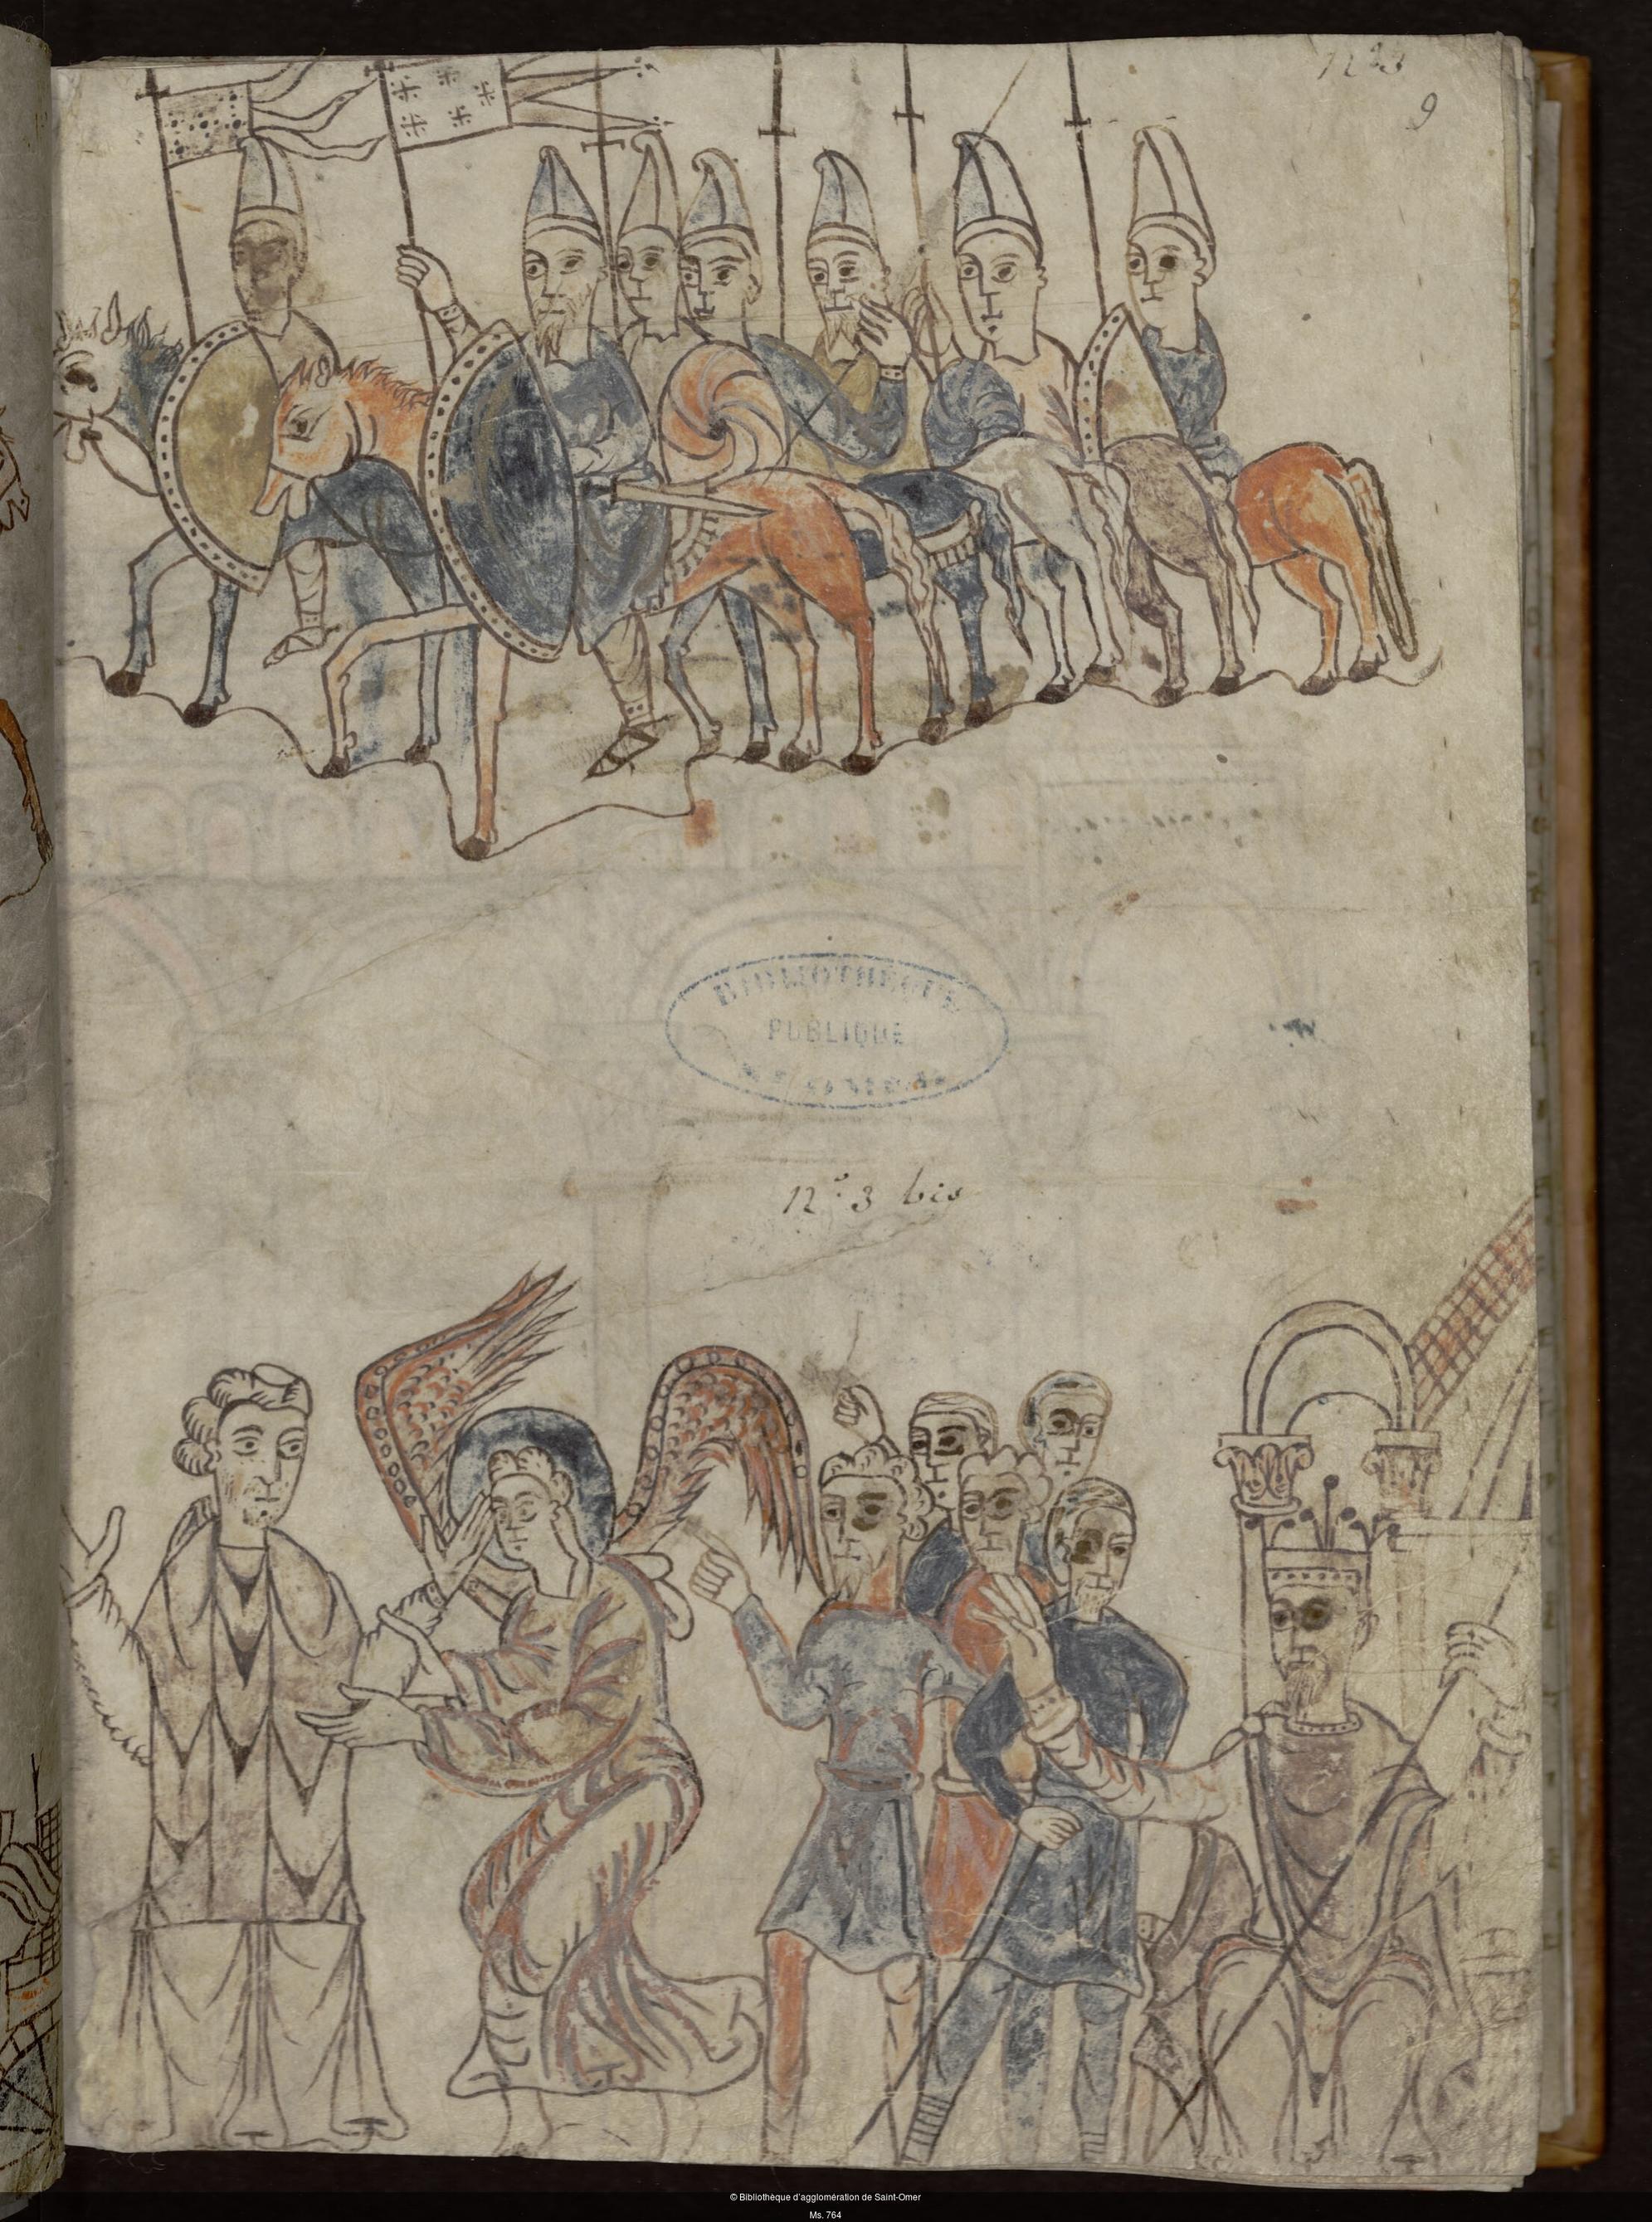 9
BIBLIOTHÈQUE
PUBLIQUE
n.° 3 bis
© Bibliothèque d'agglomération de Saint-Omer
Ms. 764